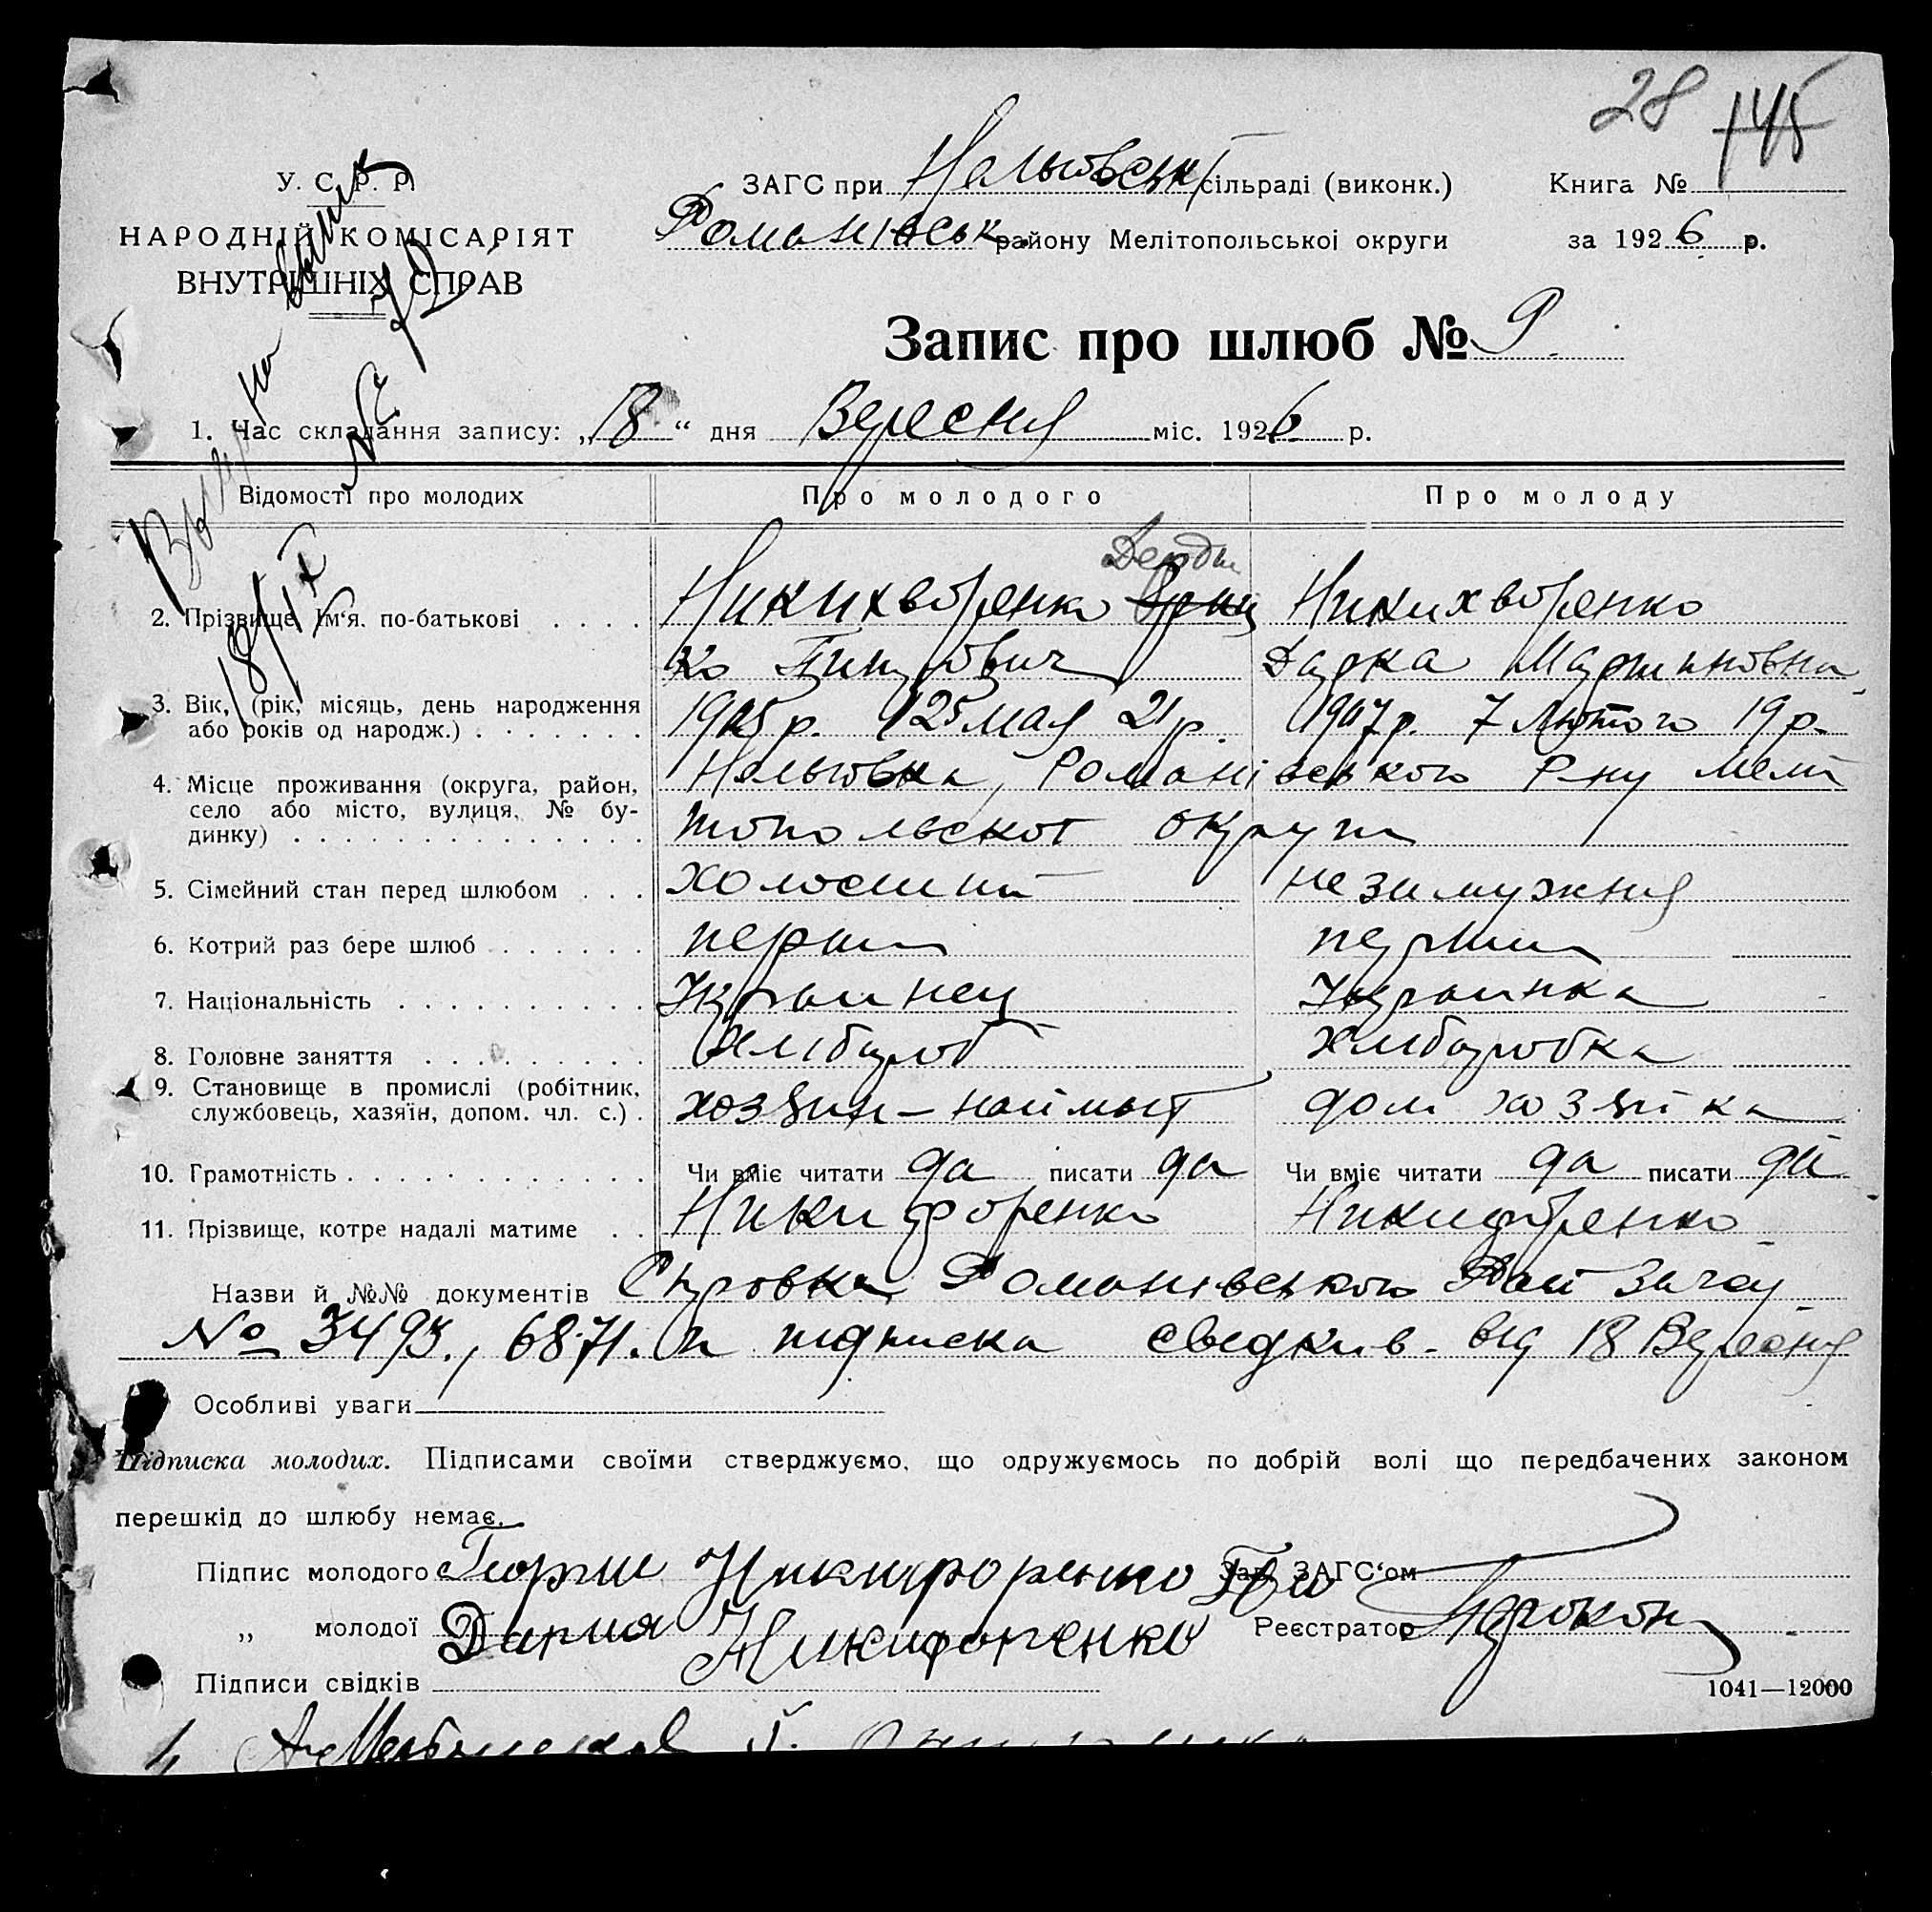 28 145
У. С. Р. Р.
НАРОДНІЙ КОМІСАРІЯТ
ВНУТРІШНІХ СПРАВ
ЗАГС при сільраді (виконк.)
Романівськ. району Мелітопольської округи
Книга №
за 1926 р.
№ 72
18/IX
Запис про шлюб № 9
1. Час складання запису: „18“ дня Вересня міс. 1926 р.
Відомості про молодих Про молодого Про молоду
2. Прізвище, ім‘я. по-батькові . . . . Никихворенко Никихворенко
Дарка Мартиновна
3. Вік, (рік, місяць, день народження
або років од народж.) . . . . . . . 1905р. 25 мая 21 р. 1907р. 7 Лютого 19 р.
4. Місце проживання (округа, район,
село або місто, вулиця, № бу-
динку) . . . . . . . . . . . . . . Романівського Р-ну Мелі
топольскої округи
5. Сімейний стан перед шлюбом . . . холостий незамужня
6. Котрий раз бере шлюб . . . . . . перши перши
7. Національність . . . . . . . . . . Украинец Украинка
8. Головне заняття . . . . . . . . . Хлібароб Хлібаробка
9. Становище в промислі (робітник,
службовець, хазяїн, допом. чл. с.) . хозяин – дом хозяіка
10. Грамотність . . . . . . . . . . . . Чи вміє читати да писати да Чи вміє читати да писати да
11. Прізвище, котре надалі матиме . . Никифоренко Никифоренко
Назви й №№ документів Справка Романівського Рай
№ 3493., 6871. и підписка свідків від 18 Вересня
Особливі уваги
Підписка молодих. Підписами своїми стверджуємо, що одружуємось по добрій волі що передбачених законом
перешкід до шлюбу немає.
Підпис молодого Георгий Никифоренко Зав. ЗАГС‘ом
„ молодої Дария Никифоренко Реєстратор
Підписи свідків
1041—12000